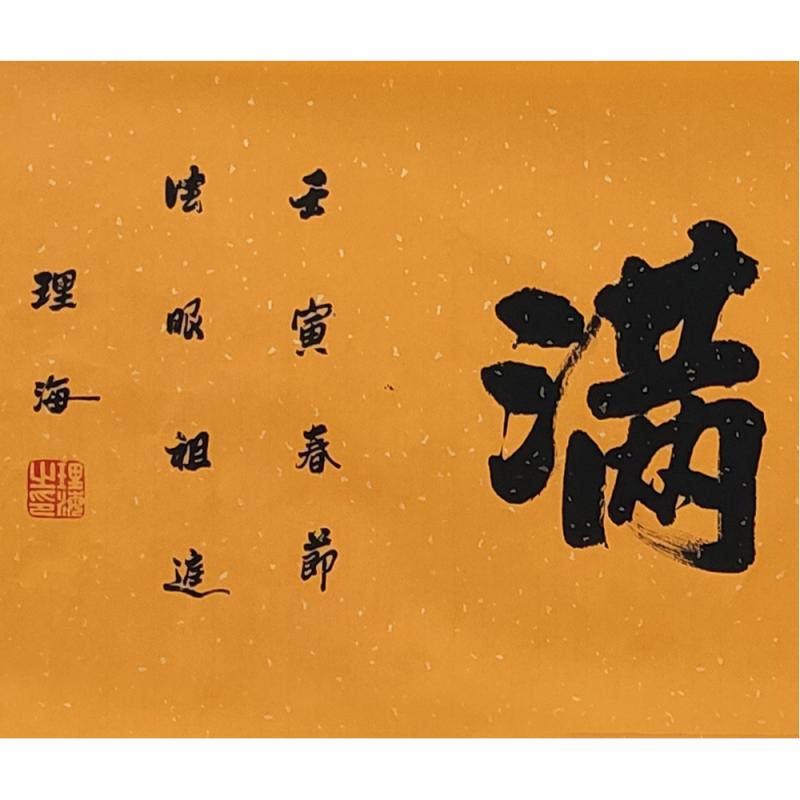 满
壬寅春節
法眼祖庭
理海
理海之印